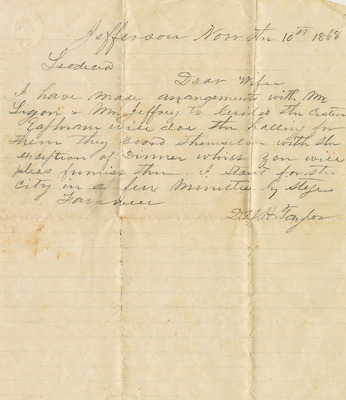 Jefferson Nov th 10th 1868
Leodecia
Dear Wife
I have made arrangements with Mr
Ligon & Mr Jeffrey to build the Cistern
Ephram will doe the halling for
them they board themselves with the
exseption of Dinner which you will
pleas furnish them. I start for the
City in a few minuties by Stage
Farewell
D H Taylor